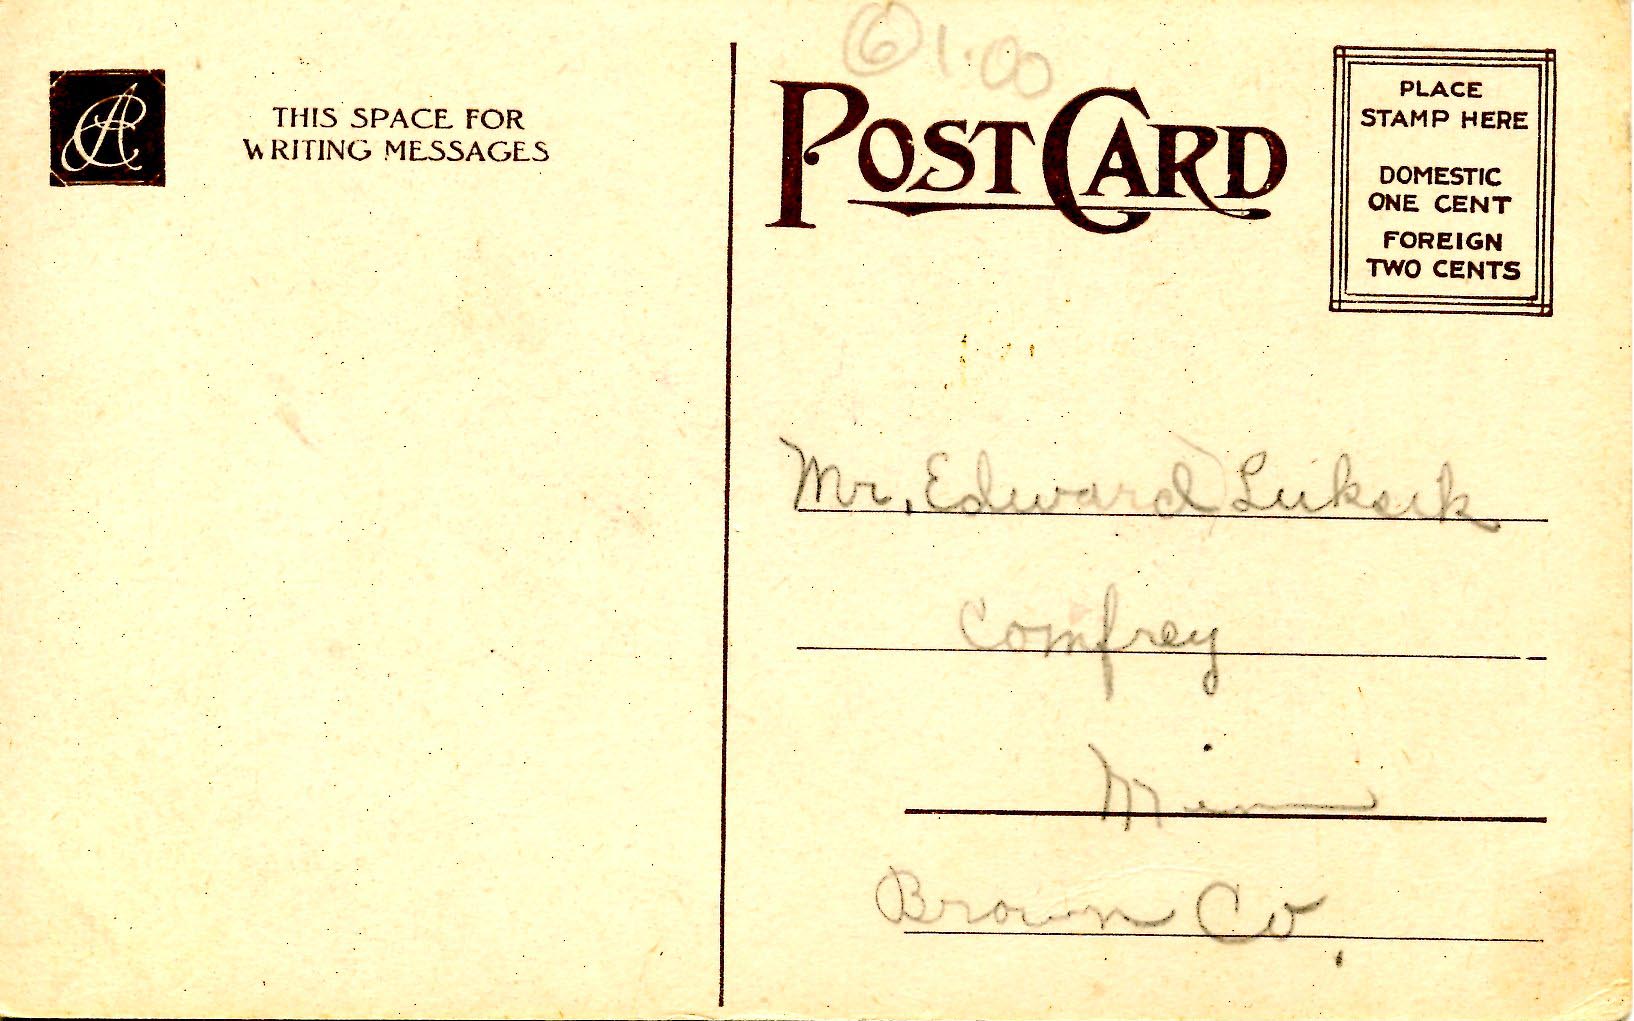 6 1.00
THIS SPACE FOR
WRITING MESSAGES
POST CARD
PLACE
STAMP HERE
DOMESTIC
ONE CENT
FOREIGN
TWO CENTS
Mr. Edward Luksik
Comfrey
Minn
Brown Co.